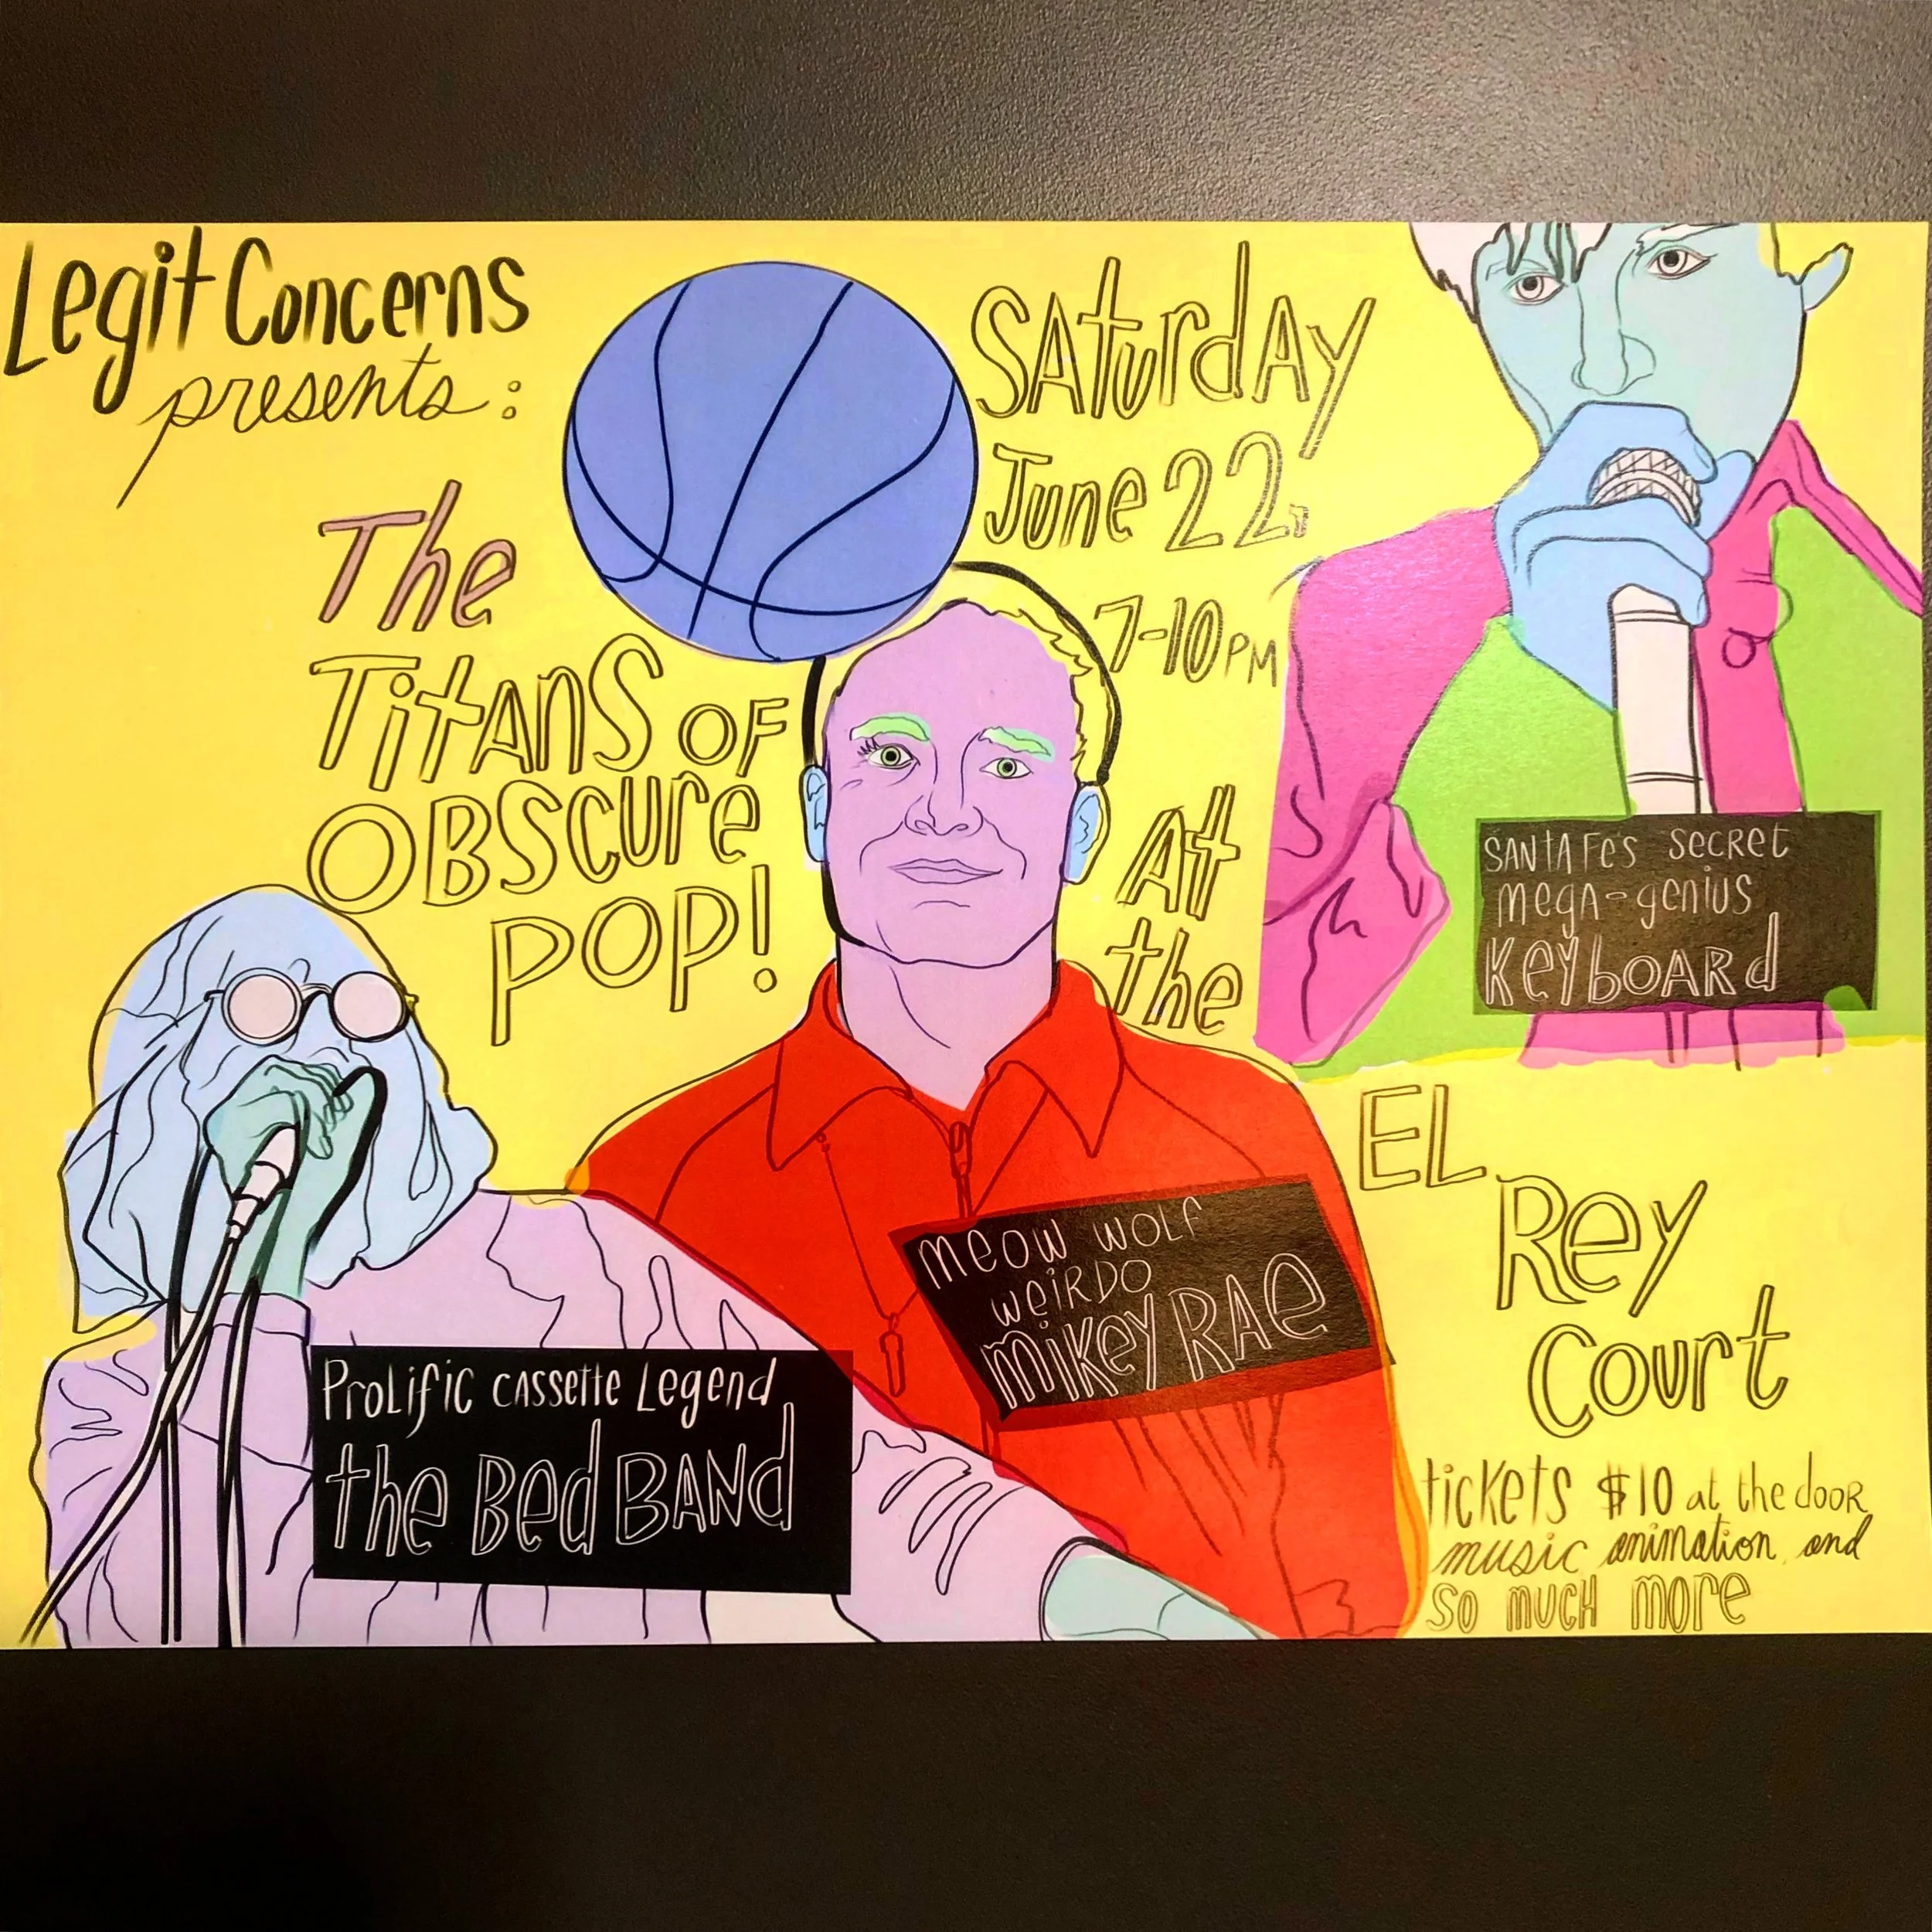 Legit Concerns
presents:
The
Titans of
Obscure
Pop!
Saturday
June 22,
7-10 PM
At
the
El
Rey
Court
tickets $10 at the door
music animation and
so much more
Santa Fe's secret
mega-genius
Keyboard
meow wolf
weirdo
mikey Rae
Prolific cassette Legend
the Bed Band